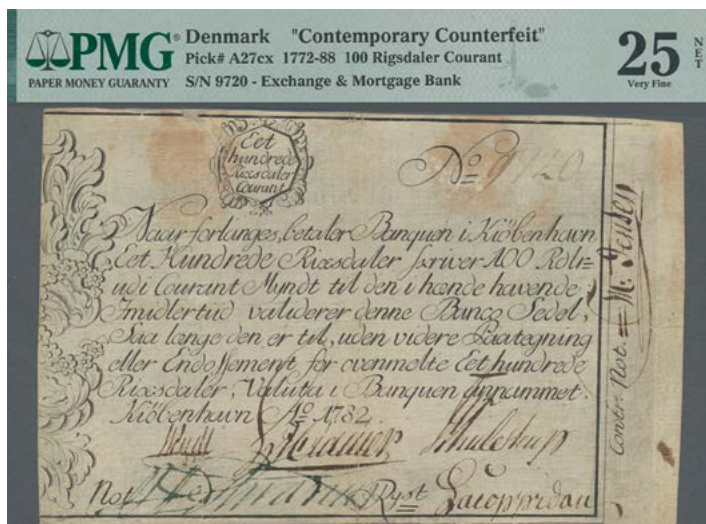 PMG
PAPER MONEY GUARANTY
Denmark "Contemporary Counterfeit"
Pick# A27cx 1772-88 100 Rigsdaler Courant
S/N 9720 - Exchange & Mortgage Bank
25
NET
Very Fine
Eet
hundrede
Rixsdaler
Courant
No 9720
Naar forlanges, betaler Banquen i Kiöbenhavn
Eet Hundrede Rixsdaler skriver 100 Rdlr
udi Courant Myndt til den i hænde havende
Imidlertiid validerer denne Banco Sedel,
Saa længe den er til, uden videre Paategning
eller Endossement for ovenmelte Eet hundrede
Rixsdaler, Valuta i Banquen annammet.
Kiöbenhavn Ao 1782
Not
Contr: Not. M. Jensen